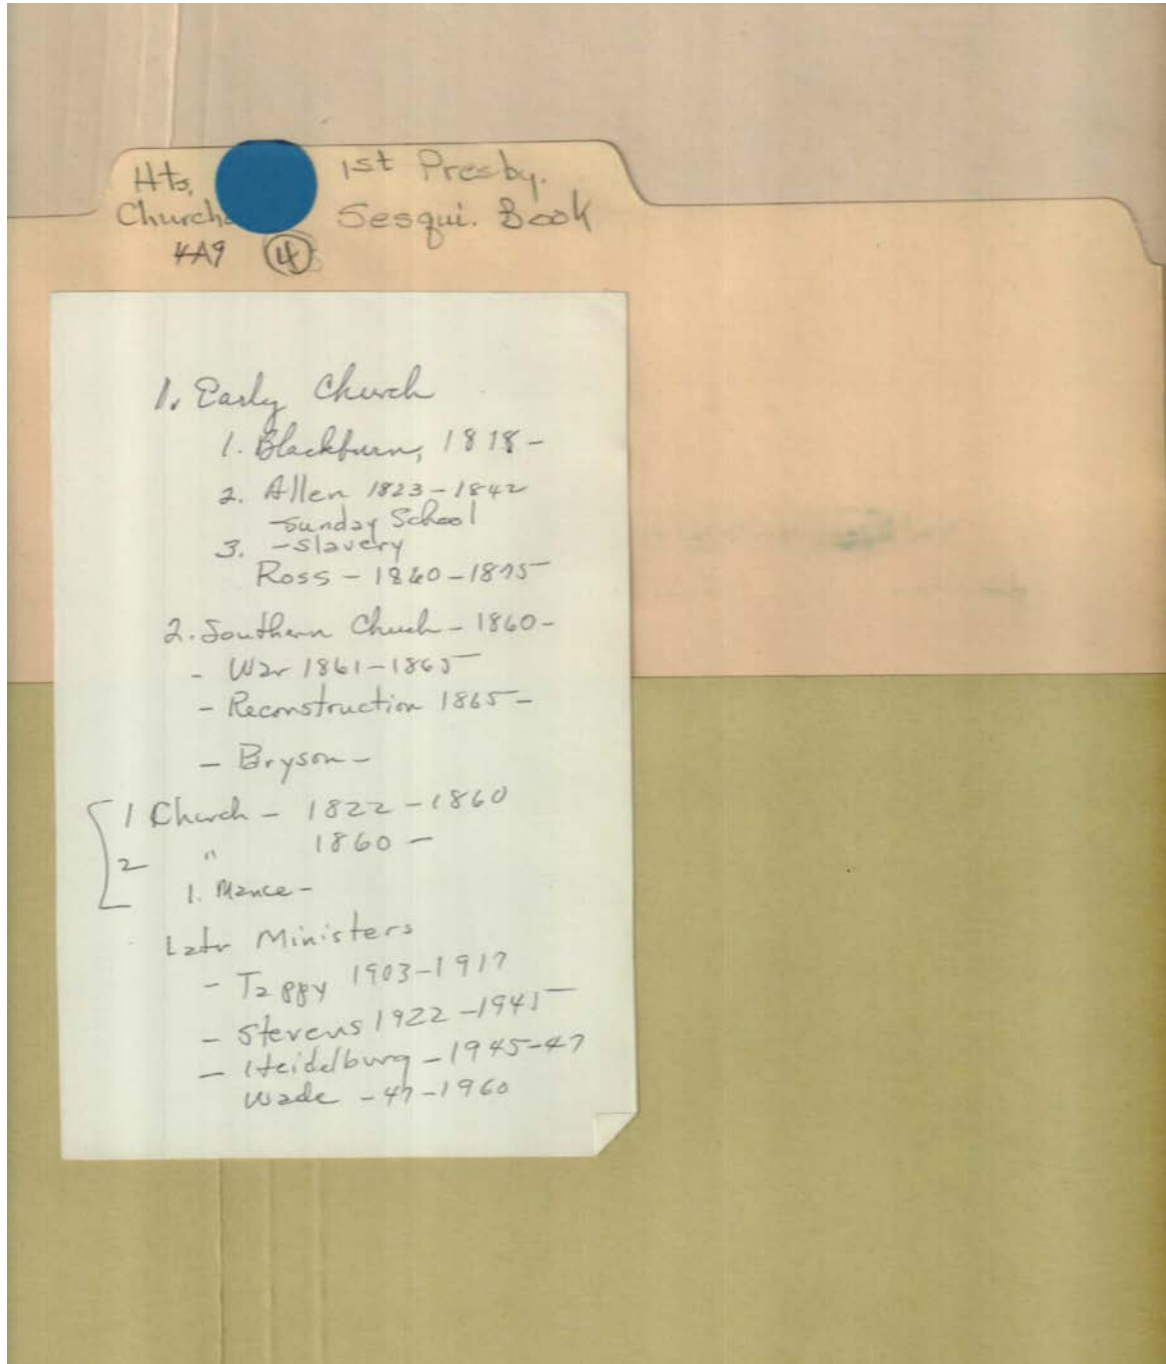 Hts,
Church
1st Presby.
Sesqui. Book
4A9 4
1. Early Church
1. Blackburn, 1818-
2. Allen 1823-1842
-Sunday School
3. -Slavery
Ross - 1860-1875
2. Southern Church - 1860-
- War 1861-1865
- Reconstruction 1865-
- Bryson -
1 Church - 1822-1860
2 " 1860 -
1. Mance -
Latr Ministers
- Tappy 1903-1917
- Stevens 1922-1945
- Heidelburg - 1945-47
Wade - 47-1960